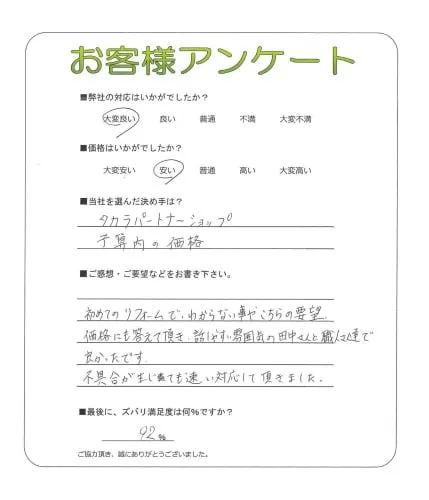 お客様アンケート
■弊社の対応はいかがでしたか？
大変良い 良い 普通 不満 大変不満
■価格はいかがでしたか？
大変安い 安い 普通 高い 大変高い
■当社を選んだ決め手は？
タカラパートナーショップ
予算内の価格
■ご感想・ご要望などをお書き下さい。
初めてのリフォームで、わからない事やこちらの要望、
価格にも答えて頂き、話しやすい雰囲気の田中さんと職人さん達で
良かったです。
不具合が生じましても速い対応して頂きました。
■最後に、ズバリ満足度は何%ですか？
92%
ご協力頂き、誠にありがとうございました。